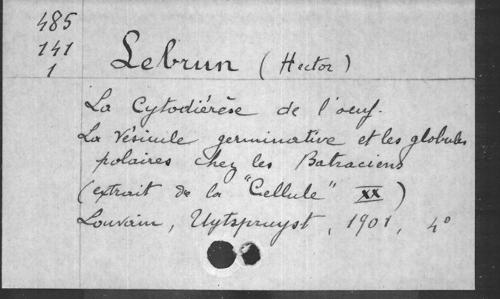 485
141
1
Lebrun (Hector)
La Cytodiérèse de l'oeuf.
La vésicule germinative et les globules
polaires chez les Batraciens
(extrait de la "Cellule" XX)
Louvain, Uytspruyst, 1901, 4°